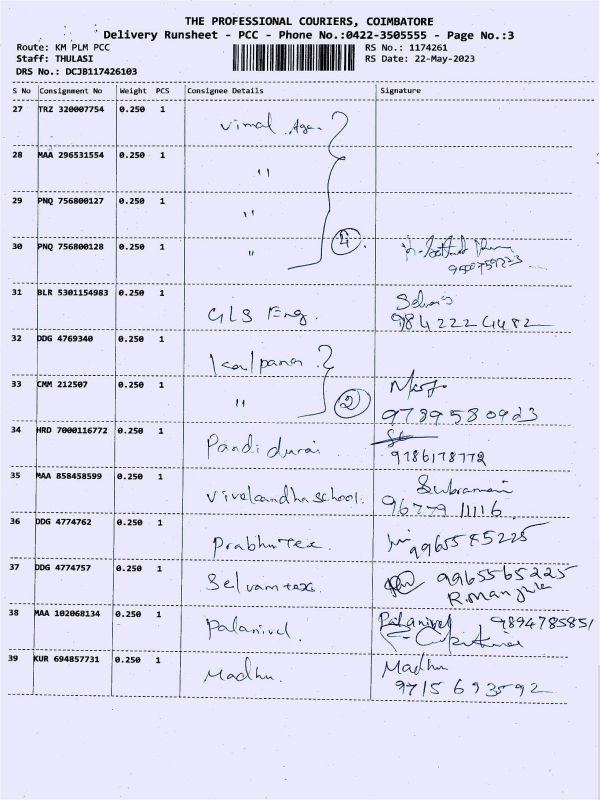 THE PROFESSIONAL COURIERS, COIMBATORE
Delivery Runsheet - PCC - Phone No.:0422-3505555 - Page No.:3
Route: KM PLM PCC RS No.: 1174261
Staff: THULASI RS Date: 22-May-2023
DRS No.: DCJB117426103
S No Consignment No Weight PCS Consignee Details Signature
27 TRZ 320007754 0.250 1 Vimal Aga.
28 MAA 296531554 0.250 1 "
29 PNQ 756800127 0.250 1 "
30 PNQ 756800128 0.250 1 " 4
31 BLR 5301154983 0.250 1 GLS Eng. Selvais
9842224482
32 DDG 4769340 0.250 1 Kalpana
33 CMM 212507 0.250 1 " 2
9789580923
34 HRD 7000116772 0.250 1 Pandidurai
9786178772
35 MAA 858458599 0.250 1 Vivekandha school. Subramani
96779 11116
36 DDG 4774762 0.250 1 Prabhu Tex. 9965585225
37 DDG 4774757 0.250 1 Selvam texs. 9965565225
R.Manjula
38 MAA 102068134 0.250 1 Palanivel. Palanivel 9894785851
39 KUR 694857731 0.250 1 Madhu. Madhu
9715693592